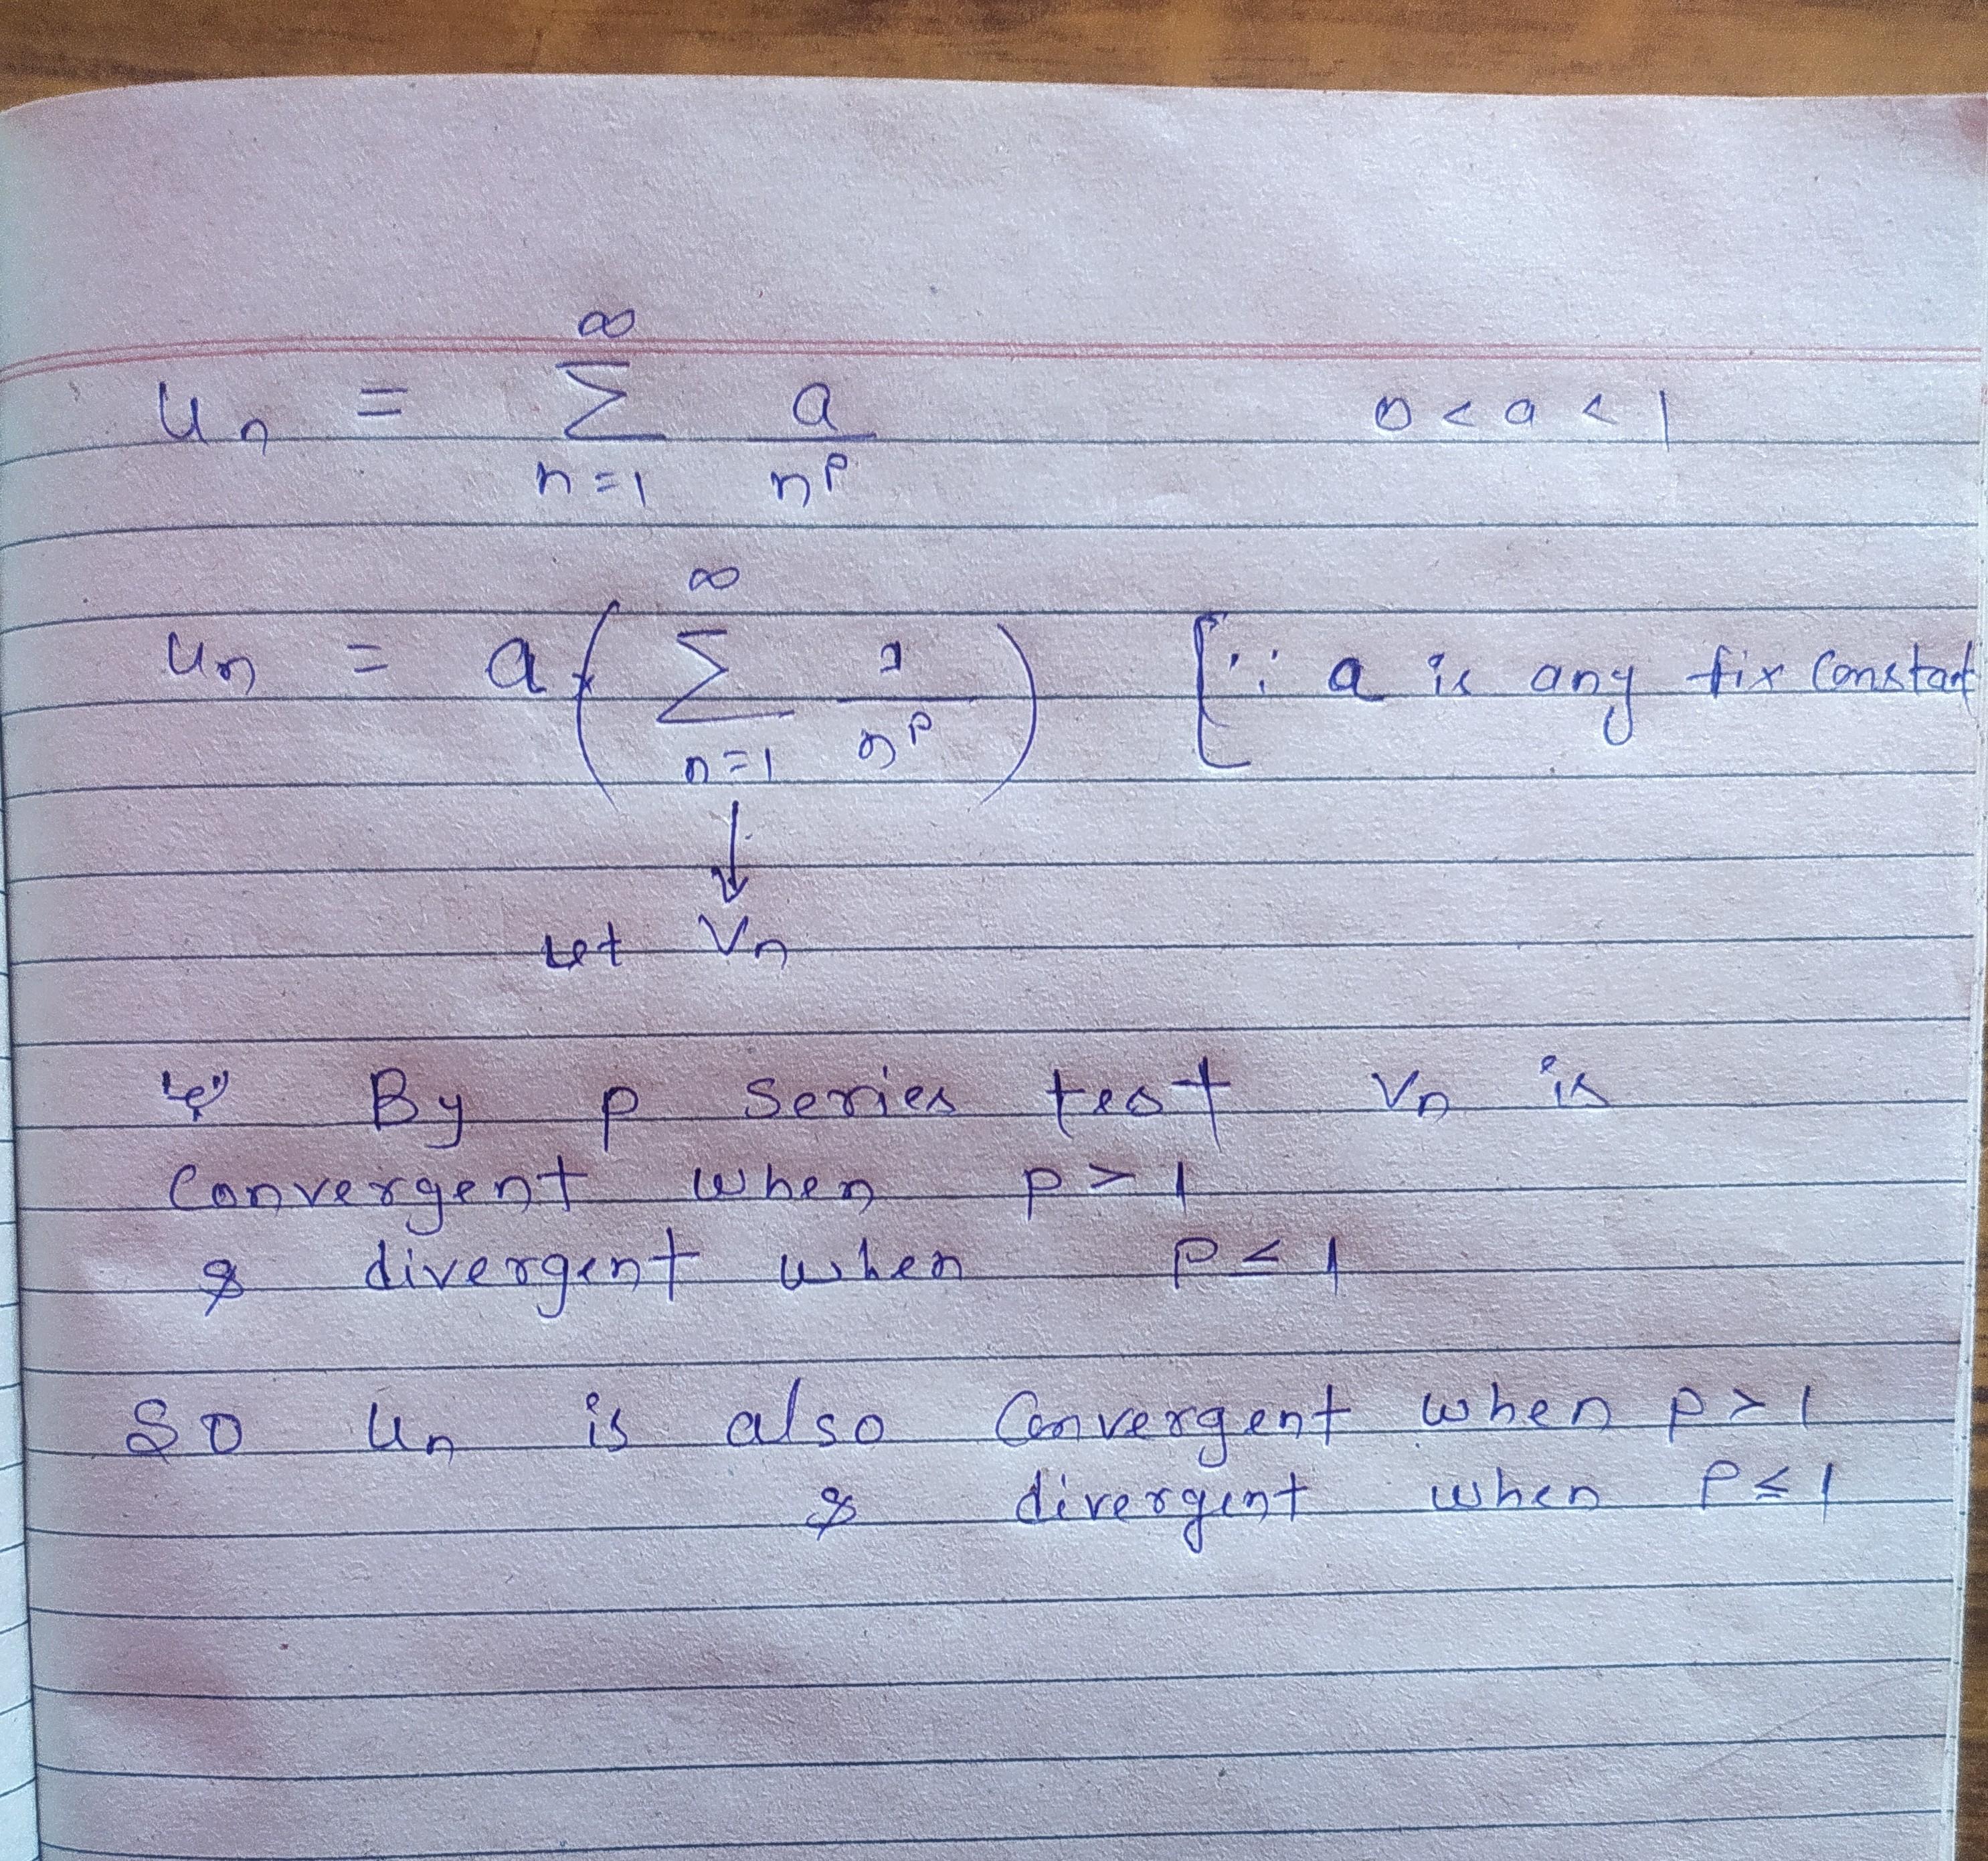 uₙ = ∞∑n=1 a/nᵖ 0 < a < 1
uₙ = a( ∞∑n=1 1/nᵖ ) [∵ a is any fix constant
↓
let Vₙ
By p series test Vₙ is
Convergent when p > 1
& divergent when p ≤ 1
So uₙ is also Convergent when p > 1
& divergent when p ≤ 1